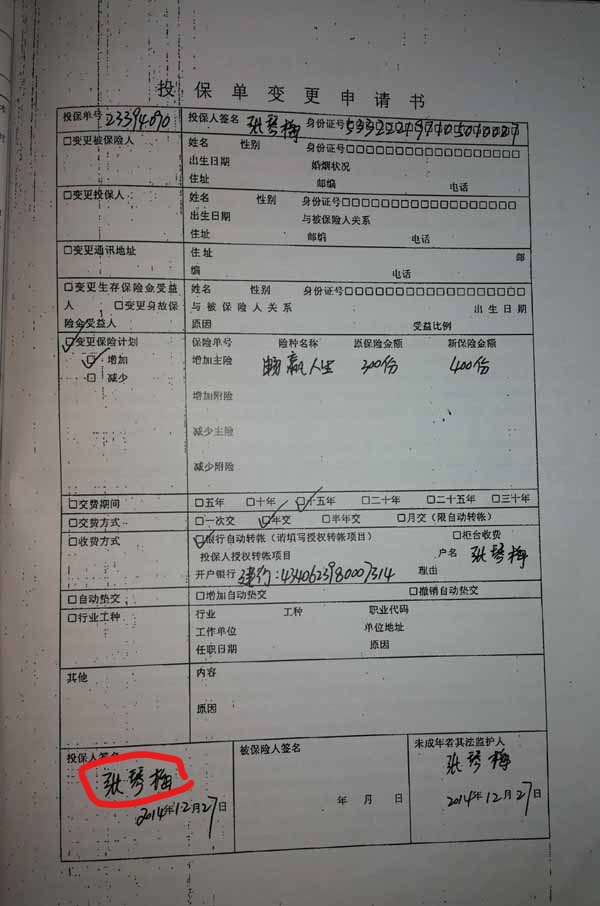 投保单变更申请书
投保单号23394090 投保人签名 张琴梅 身份证号
□变更被保险人 姓名 性别 身份证号□□□□□□□□□□□□□□□□□□
出生日期 婚姻状况
住址 邮编 电话
□变更投保人 姓名 性别 身份证号□□□□□□□□□□□□□□□□□□
出生日期 与被保险人关系
住址 邮编 电话
□变更通讯地址 住址 邮
编 电话
□变更生存保险金受益 姓名 性别 身份证号□□□□□□□□□□□□□□□□□□
人 □变更身故保 与被保险人关系 出生日期
险金受益人 原因 受益比例
□变更保险计划 保险单号 险种名称 原保险金额 新保险金额
□ 增加 增加主险 畅赢人生 300份 400份
□ 减少
增加附险
减少主险
减少附险
□交费期间 □五年 □十年 □十五年 □二十年 □二十五年 □三十年
□交费方式 □一次交 □年交 □半年交 □月交(限自动转帐)
□收费方式 □银行自动转帐(请填写授权转帐项目) □柜台收费
投保人授权转帐项目 户名 张琴梅
开户银行 建行:4340623980007314 理由
□自动垫交 □增加自动垫交 □撤销自动垫交
□行业工种 行业 工种 职业代码
工作单位 单位地址
任职日期 原因
其他 内容
原因
投保人签名 被保险人签名 未成年者其法监护人
张琴梅 张琴梅
2014年12月27日 年 月 日 2014年12月27日